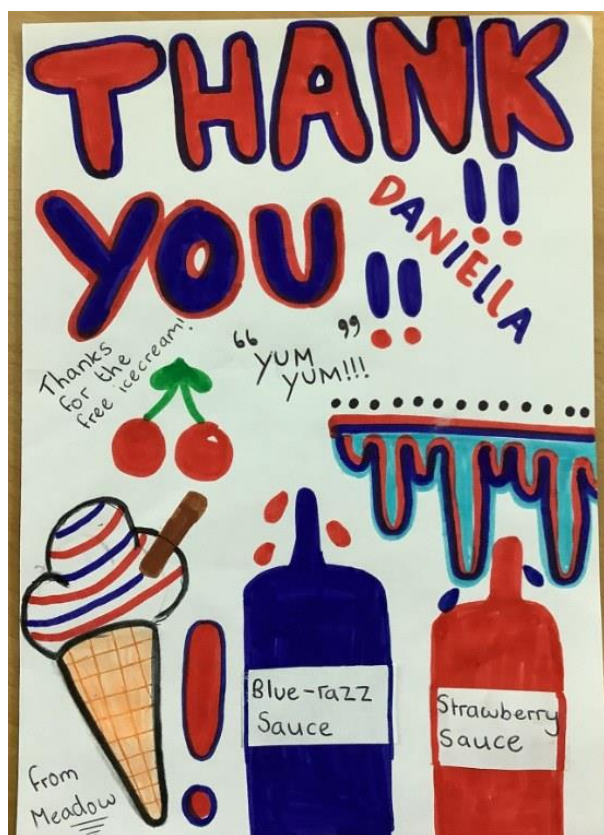 THANK
YOU!!
DANIELLA!!
Thanks
for the
free icecream!
“YUM
YUM!!!”
!
Blue-razz
Sauce
Strawberry
Sauce
from
Meadow